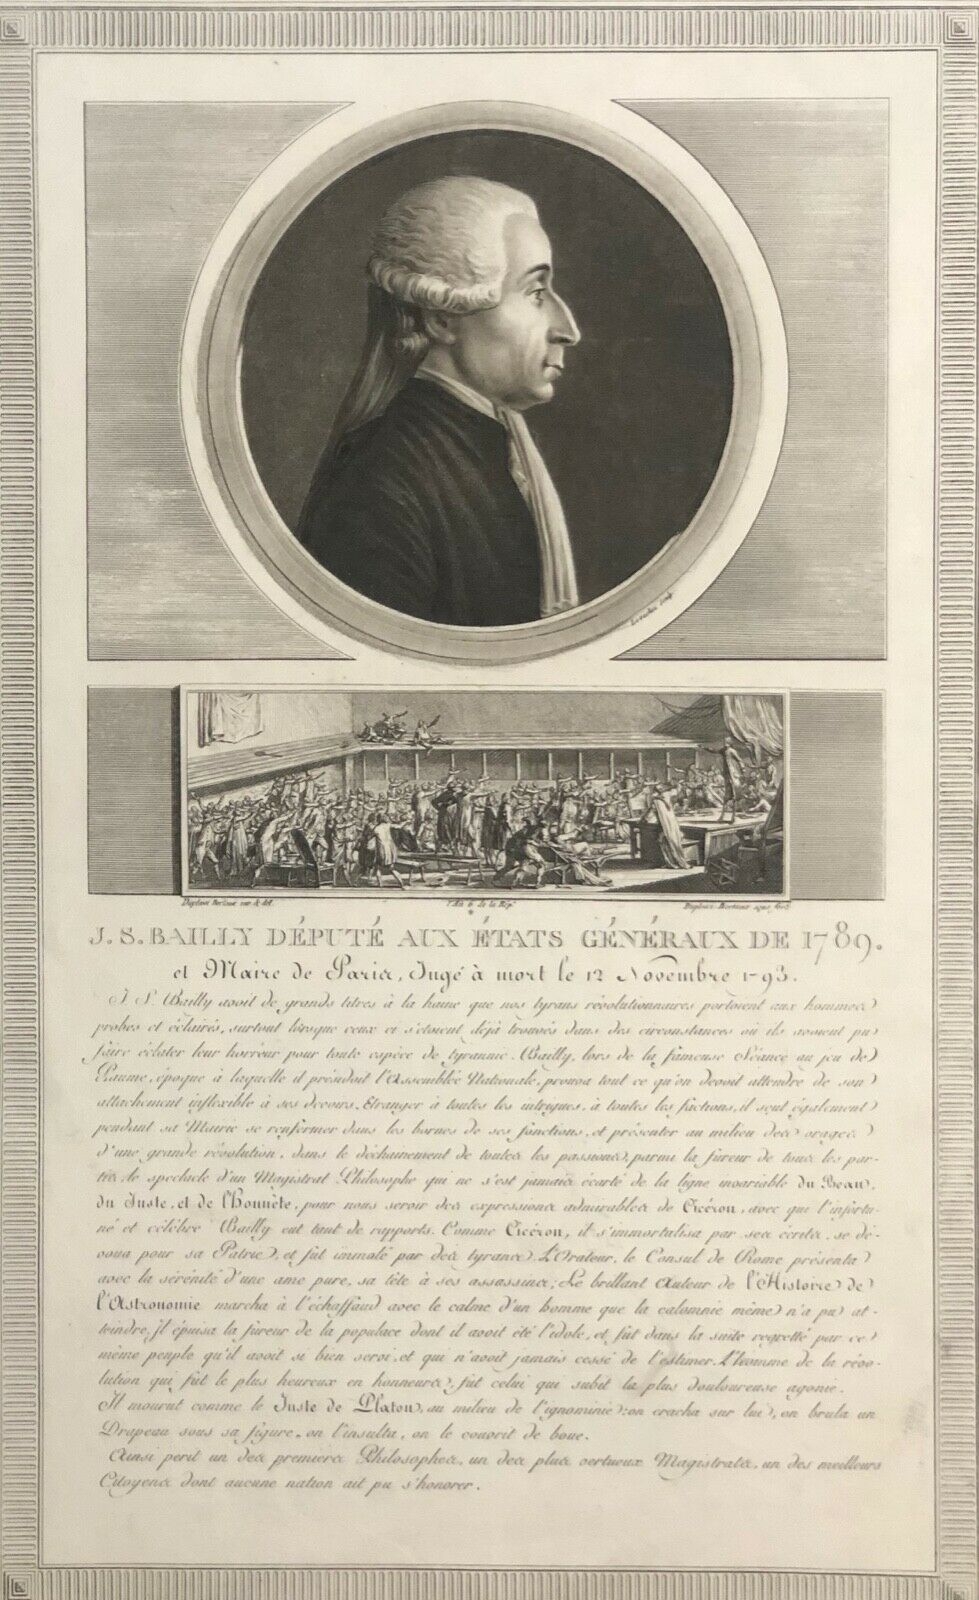 Levachez sculp.
Duplessi Bertaux inv & del.
l'An 6 de la Rép.
Duplessi Bertaux aqua forti
J. S. BAILLY DÉPUTÉ AUX ÉTATS GÉNÉRAUX DE 1789.
et Maire de Paris, Jugé à mort le 12 Novembre 1793.
J. S. Bailly avoit de grands titres à la haine que nos tyrans révolutionnaires portoient aux hommes
probes et éclairés, surtout lorsque ceux ci s'étoient déjà trouvés dans des circonstances où ils avoient pu
faire éclater leur horreur pour toute espèce de tyrannie. Bailly, lors de la fameuse Séance au jeu de
Paume, époque à laquelle il présidoit l'Assemblée Nationale, prouva tout ce qu'on devoit attendre de son
attachement inflexible à ses devoirs. Etranger à toutes les intrigues, à toutes les factions, il sçut également
pendant sa Mairie se renfermer dans les bornes de ses fonctions, et présenter au milieu des orages
d'une grande révolution, dans le déchainement de toutes les passions, parmi la fureur de tous les par-
tis, le spectacle d'un Magistrat Philosophe qui ne s'est jamais écarté de la ligne invariable du Beau,
du Juste, et de l'Honnête, pour nous servir des expressions admirables de Cicéron, avec qui l'infortu-
né et célèbre Bailly eut tant de rapports. Comme Cicéron, il s'immortalisa par ses écrits, se dé-
voua pour sa Patrie, et fut immolé par des tyrans. L'Orateur, le Consul de Rome présenta
avec la sérénité d'une ame pure, sa tête à ses assassins; Le brillant Auteur de l'Histoire de
l'Astronomie marcha à l'échaffaud avec le calme d'un homme que la calomnie même n'a pu at-
teindre. Il épuisa la fureur de la populace dont il avoit été l'idole, et fut dans la suite regretté par ce
même peuple qu'il avoit si bien servi, et qui n'avoit jamais cessé de l'estimer. L'homme de la révo-
lution qui fut le plus heureux en honneurs, fut celui qui subit la plus douloureuse agonie.
Il mourut comme le Juste de Platon, au milieu de l'ignominie: on cracha sur lui, on brula un
Drapeau sous sa figure, on l'insulta, on le couvrit de boue.
Ainsi périt un des premiers Philosophes, un des plus vertueux Magistrats, un des meilleurs
Citoyens dont aucune nation ait pu s'honorer.